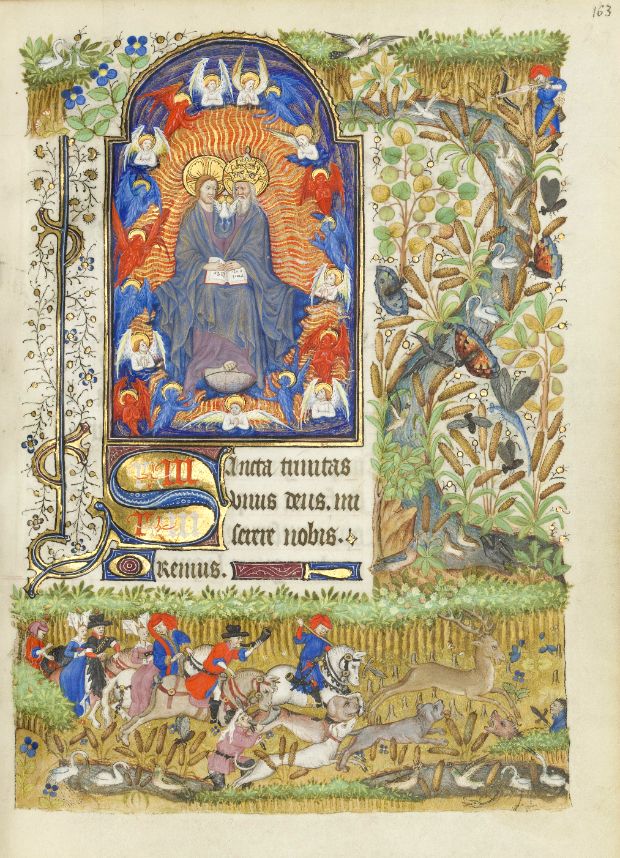 163
Sancta trinitas
vnus deus. mi
serre nobis.
Oremus.